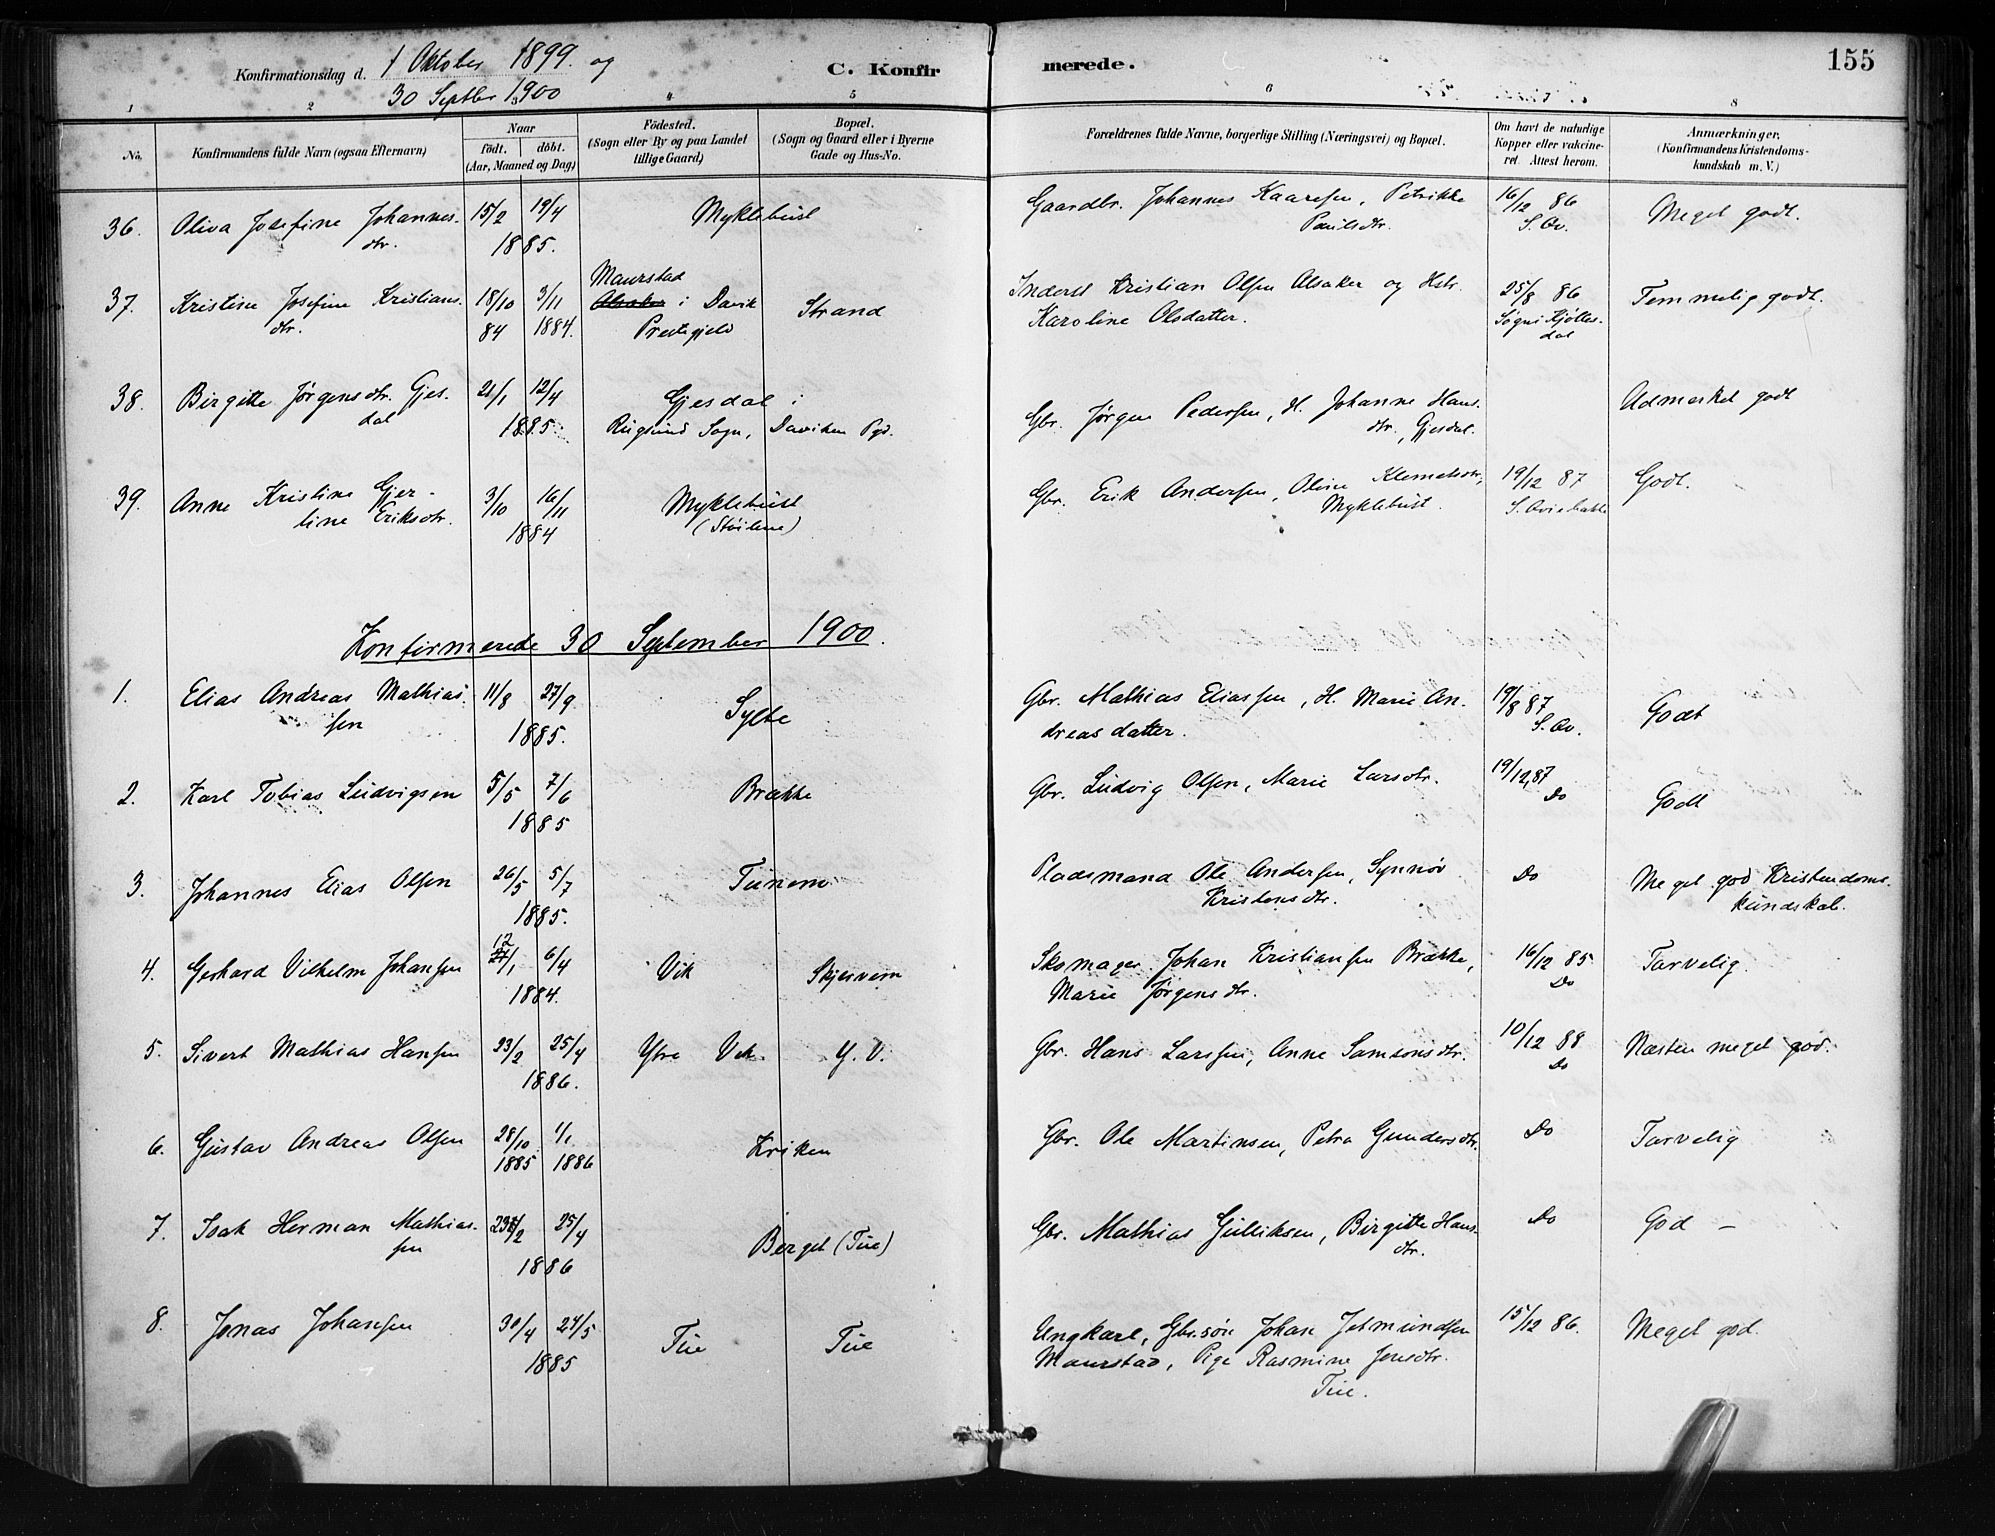 Konfirmationsdag d. 1 Oktober 1899. og
30 Septbr 1900
C. Konfirmerede.
155
1 2 3 4 5 6 8
No.
Konfirmandens fulde Navn (ogsaa Efternavn)
Naar
födt. döbt.
(Aar, Maaned og Dag)
Födested.
(Sogn eller By og paa Landet
tillige Gaard)
Bopæl.
(Sogn og Gaard eller i Byerne
Gade og Hus-No.
Forældrenes fulde Navne, borgerlige Stilling (Næringsvei) og Bopæl.
Om havt de naturlige
Kopper eller vakcine-
ret. Attest herom.
Anmærkninger,
(Konfirmandens Kristendoms-
kundskab m. V.)
36. Oliva Josefine Johannes- 15/2 19/4 Myklebust Gaardbr. Johannes Kaaresen, Petrikke 16/12 86 Meget godt.
dtr. 1885. Paulsdtr. S. Av.
Maurstad
37. Kristine Josefine Kristians- 18/10 3/11 Alsaker i Davik Strand Inderst Kristian Olsen Alsaker og Hstr. 25/8 86 Temmelig godt.
dtr. 84 1884. Prestegjeld Karoline Olsdatter. Sogni Kjölles-
dal
38. Birgitte Jørgensdtr. Gjes- 21/1 12/4 Gjesdal i Gbr. Jørgen Pedersen, H. Johanne Hans- Udmerket godt
dal 1885. Rugsund Sogn, Daviken Pgd. dtr., Gjesdal.
39. Anne Kristine Gjer- 3/10 16/11 Myklebust Gbr. Erik Andersen, Oline Klemetsdtr, 19/12 87 Godt.
tine Eriksdtr. 1884 (Støilene) Myklebust.
Konfirmerede 30 September 1900.
1. Elias Andreas Mathias- 11/8 27/9 Sylte Gbr. Mathias Eliassen, H. Marie An- 19/8 87 Godt
sen 1885. dreasdatter. S. Av.
2. Karl Tobias Ludvigsen 5/5 7/6 Brække Gbr. Ludvig Olsen, Marie Larsdtr. 19/12,87 Godt
1885 Do
3. Johannes Elias Olsen 26/5 5/7 Tunem Pladsmand Ole Andersen, Synnøv Do Meget god Kristendoms-
1885. Kristensdtr. kundskab.
12
4. Gerhard Vilhelm Johansen /1 6/4 Vik Skjesvem Skomager Johan Kristiansen Brække, 16/12 85 Tarvelig.
1884. Marie Jørgensdtr. Do
5. Sivert Mathias Hansen 23/2 25/4 Ytre Vik. Y. V. Gbr. Hans Larssen, Anne Samsonsdtr. 10/12 88 Næsten meget god.
1886. Do
6. Gustav Andreas Olsen 28/10 1/1 Kriken Gbr. Ole Martinsen, Petra Gundersdtr. Do Tarvelig
1885 1886
7. Isak Herman Mathias- 23/2 25/4 Berget (Tue) Gbr. Mathias Gulliksen, Birgitte Hans- Do God –
sen 1886 dtr.
8. Jonas Johansen 30/4 24/5 Tue Tue Ungkarl, Gbr.søn Johan Jetmundsen 15/12 86. Meget god.
1885 Maurstad, Pige Rasmine Jensdtr.
Tue.